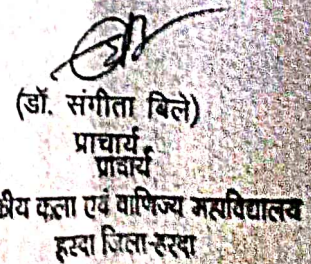 (डॉ. संगीता बिले)
प्राचार्य
प्राचार्य
कीय कला एवं वाणिज्य महाविद्यालय
हरदा जिला-हरदा